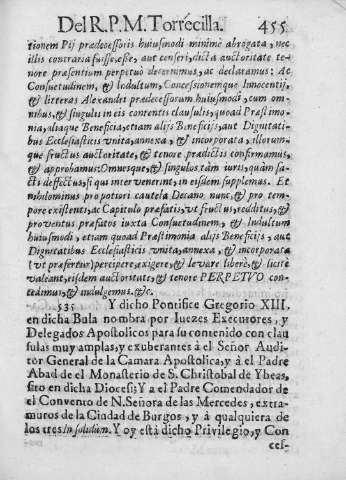 Del R.P.M. Torrecilla. 455
tionem Pij prædecessoris huiusmodi minimè abrogata, nec
illis contraria fuisse, esse, aut censeri, dicta auctoritate te-
nore præsentium perpetuò decernimus, ac declaramus: Ac
Consuetudinem, & Indultum, Concessionemque Innocentij,
& litteras Alexandri prædecessorum huiusmodi, cum om-
nibus, & singulis in eis contentis clausulis, quoad Præstimo-
nia, aliaque Beneficia, etiam alijs Beneficijs, aut Dignitati-
bus Ecclesiasticis vnita, annexa, & incorporata, illorum-
que fructus auctoritate, & tenore prædictis confirmamus,
& approbamus: Omnesque, & singulos, tàm iuris, quàm fa-
cti deffectus, si qui intervenerint, in eisdem supplemus. Et
nihilominus pro potiori cautela Decano nunc, & pro tem-
pore existenti, ac Capitulo præfatis, vt fructus, redditus, &
proventus præfatos iuxta Consuetudinem, & Indultum
huiusmodi, etiam quoad Præstimonia alijs Beneficijs, aut
Dignitatibus Ecclesiasticis vnita, annexa, & incorporata
(vt præfertur) percipere, exigere, & levare liberè, & licitè
valeant, eisdem auctoritate, & tenore PERPETVO con-
cedimus, & indulgemus. &c.
§35 Y dicho Pontifice Gregorio XIII.
en dicha Bula nombra por Iuezes Executores, y
Delegados Apostolicos para su contenido con clau
sulas muy amplas, y exuberantes à el Señor Audi-
tor General de la Camara Apostolica, y à el Padre
Abad de el Monasterio de S. Christobal de Ybeas,
sito en dicha Diocesi; Y a el Padre Comendador de
el Convento de N. Señora de las Mercedes, extra-
muros de la Ciudad de Burgos, y à qualquiera de
los tres in solidum. Y oy està dicho Privilegio, y Con
ces-